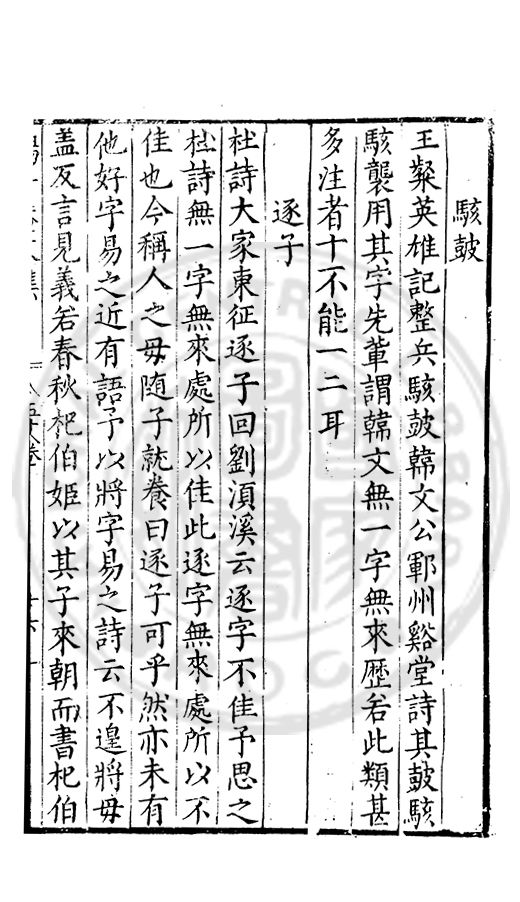 駭鼓
王粲英雄記整兵駭鼓韓文公鄆州谿堂詩其鼓駭
駭襲用其字先輩謂韓文無一字無來歷若此類甚
多注者十不能一二耳
逐子
杜詩大家東征逐子回劉湏溪云逐字不佳予思之
杜詩無一字無來處所以佳此逐字無來處所以不
佳也今稱人之毋随子就養曰逐子可乎然亦未有
他好字易之近有語予以將字易之詩云不遑將毋
盖反言見義若春秋杞伯姬以其子來朝而書杞伯